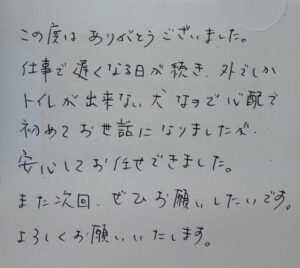 この度は ありがとうございました。
仕事で遅くなる日が続き、外でしか
トイレが出来ない犬なので心配で
初めてお世話になりましたが、
安心してお任せできました。
また次回、ぜひお願いしたいです。
よろしくお願いいたします。